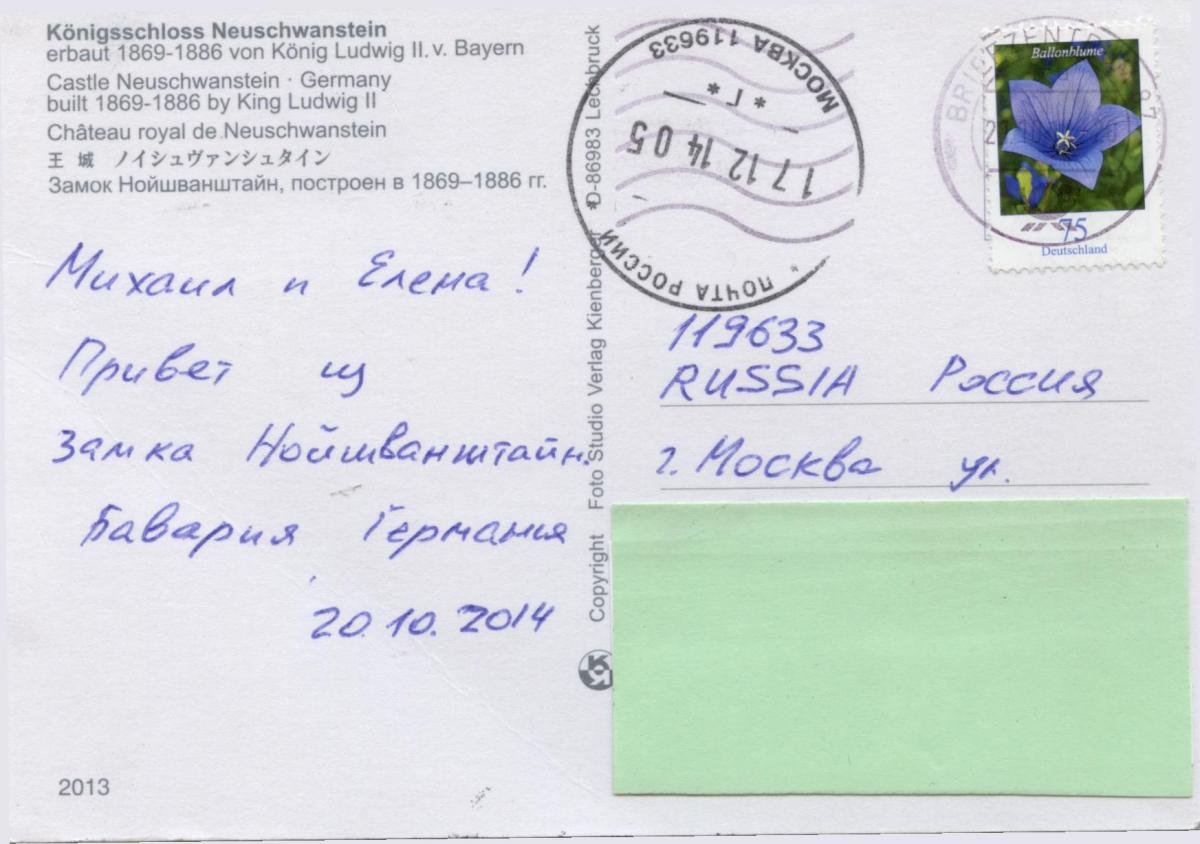 Königsschloss Neuschwanstein
erbaut 1869-1886 von König Ludwig II. v. Bayern
Castle Neuschwanstein · Germany
built 1869-1886 by King Ludwig II
Château royal de Neuschwanstein
王 城 ノイシュヴァンシュタイン
Замок Нойшванштайн, построен в 1869–1886 гг.
Михаил и Елена!
Привет из
Замка Нойшванштайн.
Бавария Германия
20.10.2014
2013
Copyright Foto Studio Verlag Kienberger *D-86983 Lechbruck
МОСКВА 119633
* Г *
17 12 14 05
ПОЧТА РОССИИ
BRIEFZENTR
Ballonblume
75
Deutschland
119633
RUSSIA Россия
г. Москва ул.